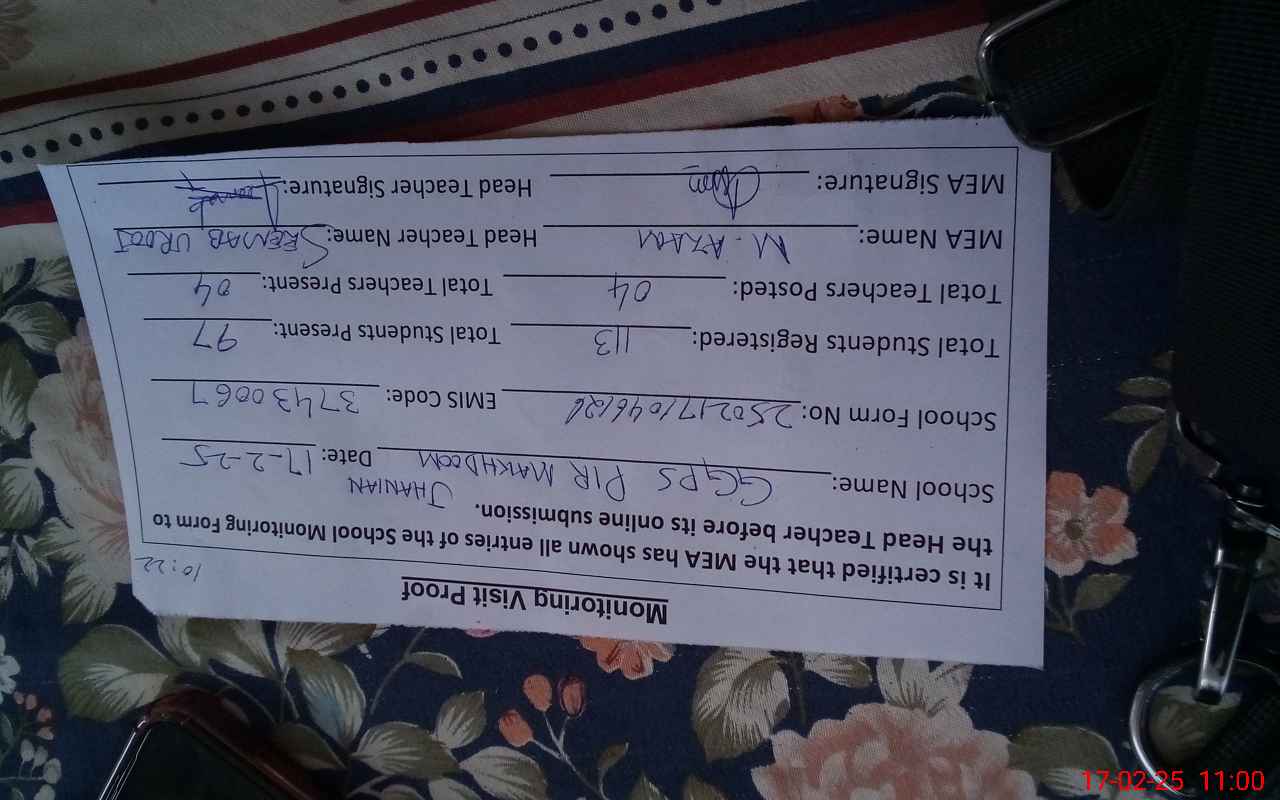 Monitoring Visit Proof
10:22
It is certified that the MEA has shown all entries of the School Monitoring Form to
the Head Teacher before its online submission.
School Name: GGPS PIR MAKHDOOM JHANIAN Date: 17-2-25
School Form No: 250217104612 EMIS Code: 37430067
Total Students Registered: 113 Total Students Present: 97
Total Teachers Posted: 04 Total Teachers Present: 04
MEA Name: M. AZAM Head Teacher Name: UROOJ
MEA Signature: Head Teacher Signature:
17-02-25 11:00